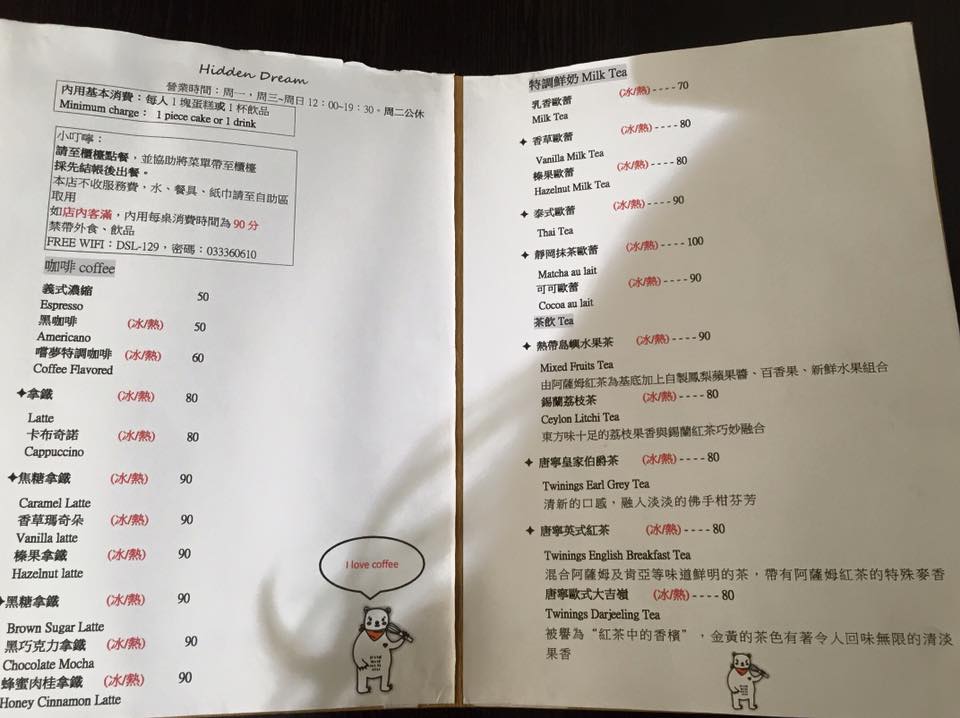 Hidden Dream
營業時間：周一，周三~周日 12：00~19：30。周二公休
內用基本消費：每人 1 塊蛋糕或 1 杯飲品
Minimum charge： 1 piece cake or 1 drink
小叮嚀：
請至櫃檯點餐，並協助將菜單帶至櫃檯
採先結帳後出餐。
本店不收服務費，水、餐具、紙巾請至自助區
取用
如店內客滿，內用每桌消費時間為 90 分
禁帶外食、飲品
FREE WIFI：DSL-129，密碼：033360610
咖啡 coffee
義式濃縮 50
Espresso
黑咖啡 (冰/熱) 50
Americano
嚐夢特調咖啡 (冰/熱) 60
Coffee Flavored
✦拿鐵 (冰/熱) 80
Latte
卡布奇諾 (冰/熱) 80
Cappuccino
✦焦糖拿鐵 (冰/熱) 90
Caramel Latte
香草瑪奇朵 (冰/熱) 90
Vanilla latte
榛果拿鐵 (冰/熱) 90
Hazelnut latte
✦黑糖拿鐵 (冰/熱) 90
Brown Sugar Latte
黑巧克力拿鐵 (冰/熱) 90
Chocolate Mocha
蜂蜜肉桂拿鐵 (冰/熱) 90
Honey Cinnamon Latte
I love coffee
特調鮮奶 Milk Tea
乳香歐蕾 (冰/熱) ---- 70
Milk Tea
✦ 香草歐蕾 (冰/熱) ---- 80
Vanilla Milk Tea
榛果歐蕾 (冰/熱) ---- 80
Hazelnut Milk Tea
✦ 泰式歐蕾 (冰/熱) ---- 90
Thai Tea
✦ 靜岡抹茶歐蕾 (冰/熱) ---- 100
Matcha au lait
可可歐蕾 (冰/熱) ---- 90
Cocoa au lait
茶飲 Tea
✦ 熱帶島嶼水果茶 (冰/熱) ---- 90
Mixed Fruits Tea
由阿薩姆紅茶為基底加上自製鳳梨蘋果醬、百香果、新鮮水果組合
錫蘭荔枝茶 (冰/熱) ---- 80
Ceylon Litchi Tea
東方味十足的荔枝果香與錫蘭紅茶巧妙融合
✦ 唐寧皇家伯爵茶 (冰/熱) ---- 80
Twinings Earl Grey Tea
清新的口感，融入淡淡的佛手柑芬芳
✦ 唐寧英式紅茶 (冰/熱) ---- 80
Twinings English Breakfast Tea
混合阿薩姆及肯亞等味道鮮明的茶，帶有阿薩姆紅茶的特殊麥香
唐寧歐式大吉嶺 (冰/熱) ---- 80
Twinings Darjeeling Tea
被譽為“紅茶中的香檳”，金黃的茶色有著令人回味無限的清淡
果香